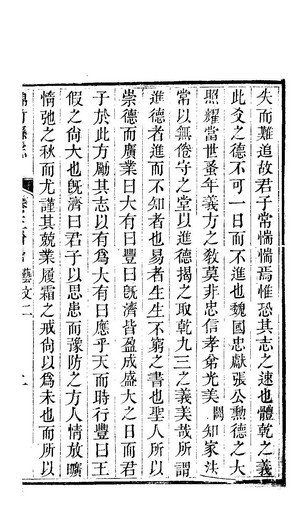 失而難追故君子常惴惴焉惟恐其志之速也體乾之義
此爻之德不可一日而不進也魏國忠獻張公勲德之大
照耀當世蚤年義方之敎莫非忠信孝弟光美闕知家法
常以無倦守之堂以進德揭之取乾九三之義美哉所謂
進德者進而不知者也易者生生不窮之書也聖人所以
崇德而廣業曰大有曰豐曰旣濟皆盈成盛大之日而君
子於此方勵其志以有為大有曰應乎天而時行豐曰王
假之尙大也旣濟曰君子以思患而豫防之方人情放曠
惰弛之秋而尤謹其兢業履霜之戒尙以為未也而所以
綿竹縣志
藝文二